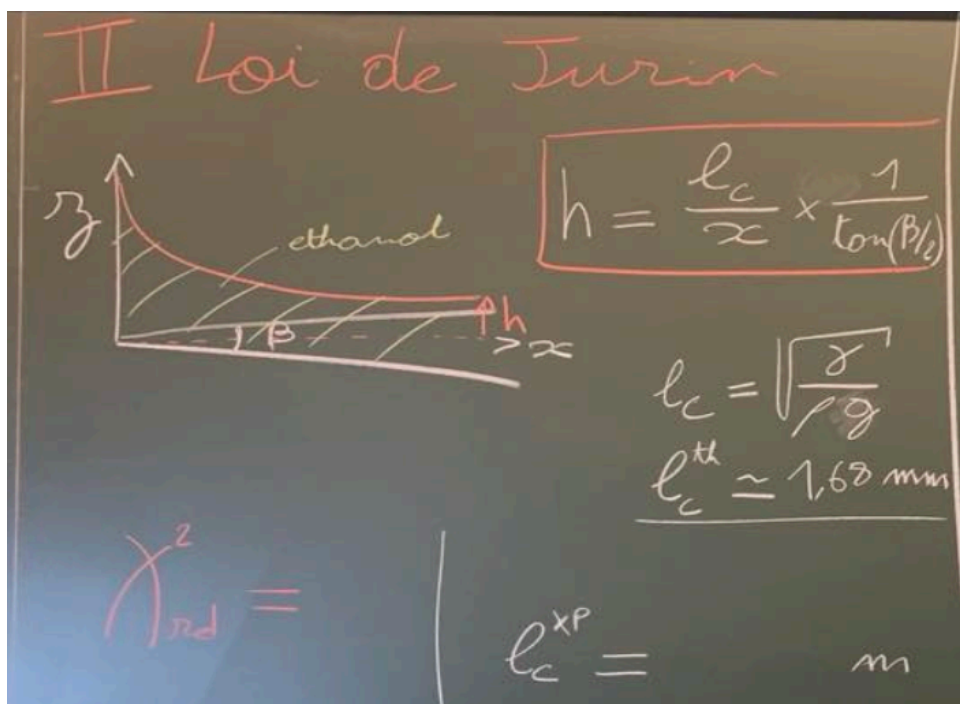 II Loi de Jurin
z
ethanol
β
h
x
h = l_c / x × 1 / tan(β/2)
l_c = √(γ / ρg)
l_c^th ≃ 1,68 mm
χ²_rd =
l_c^xp =      m